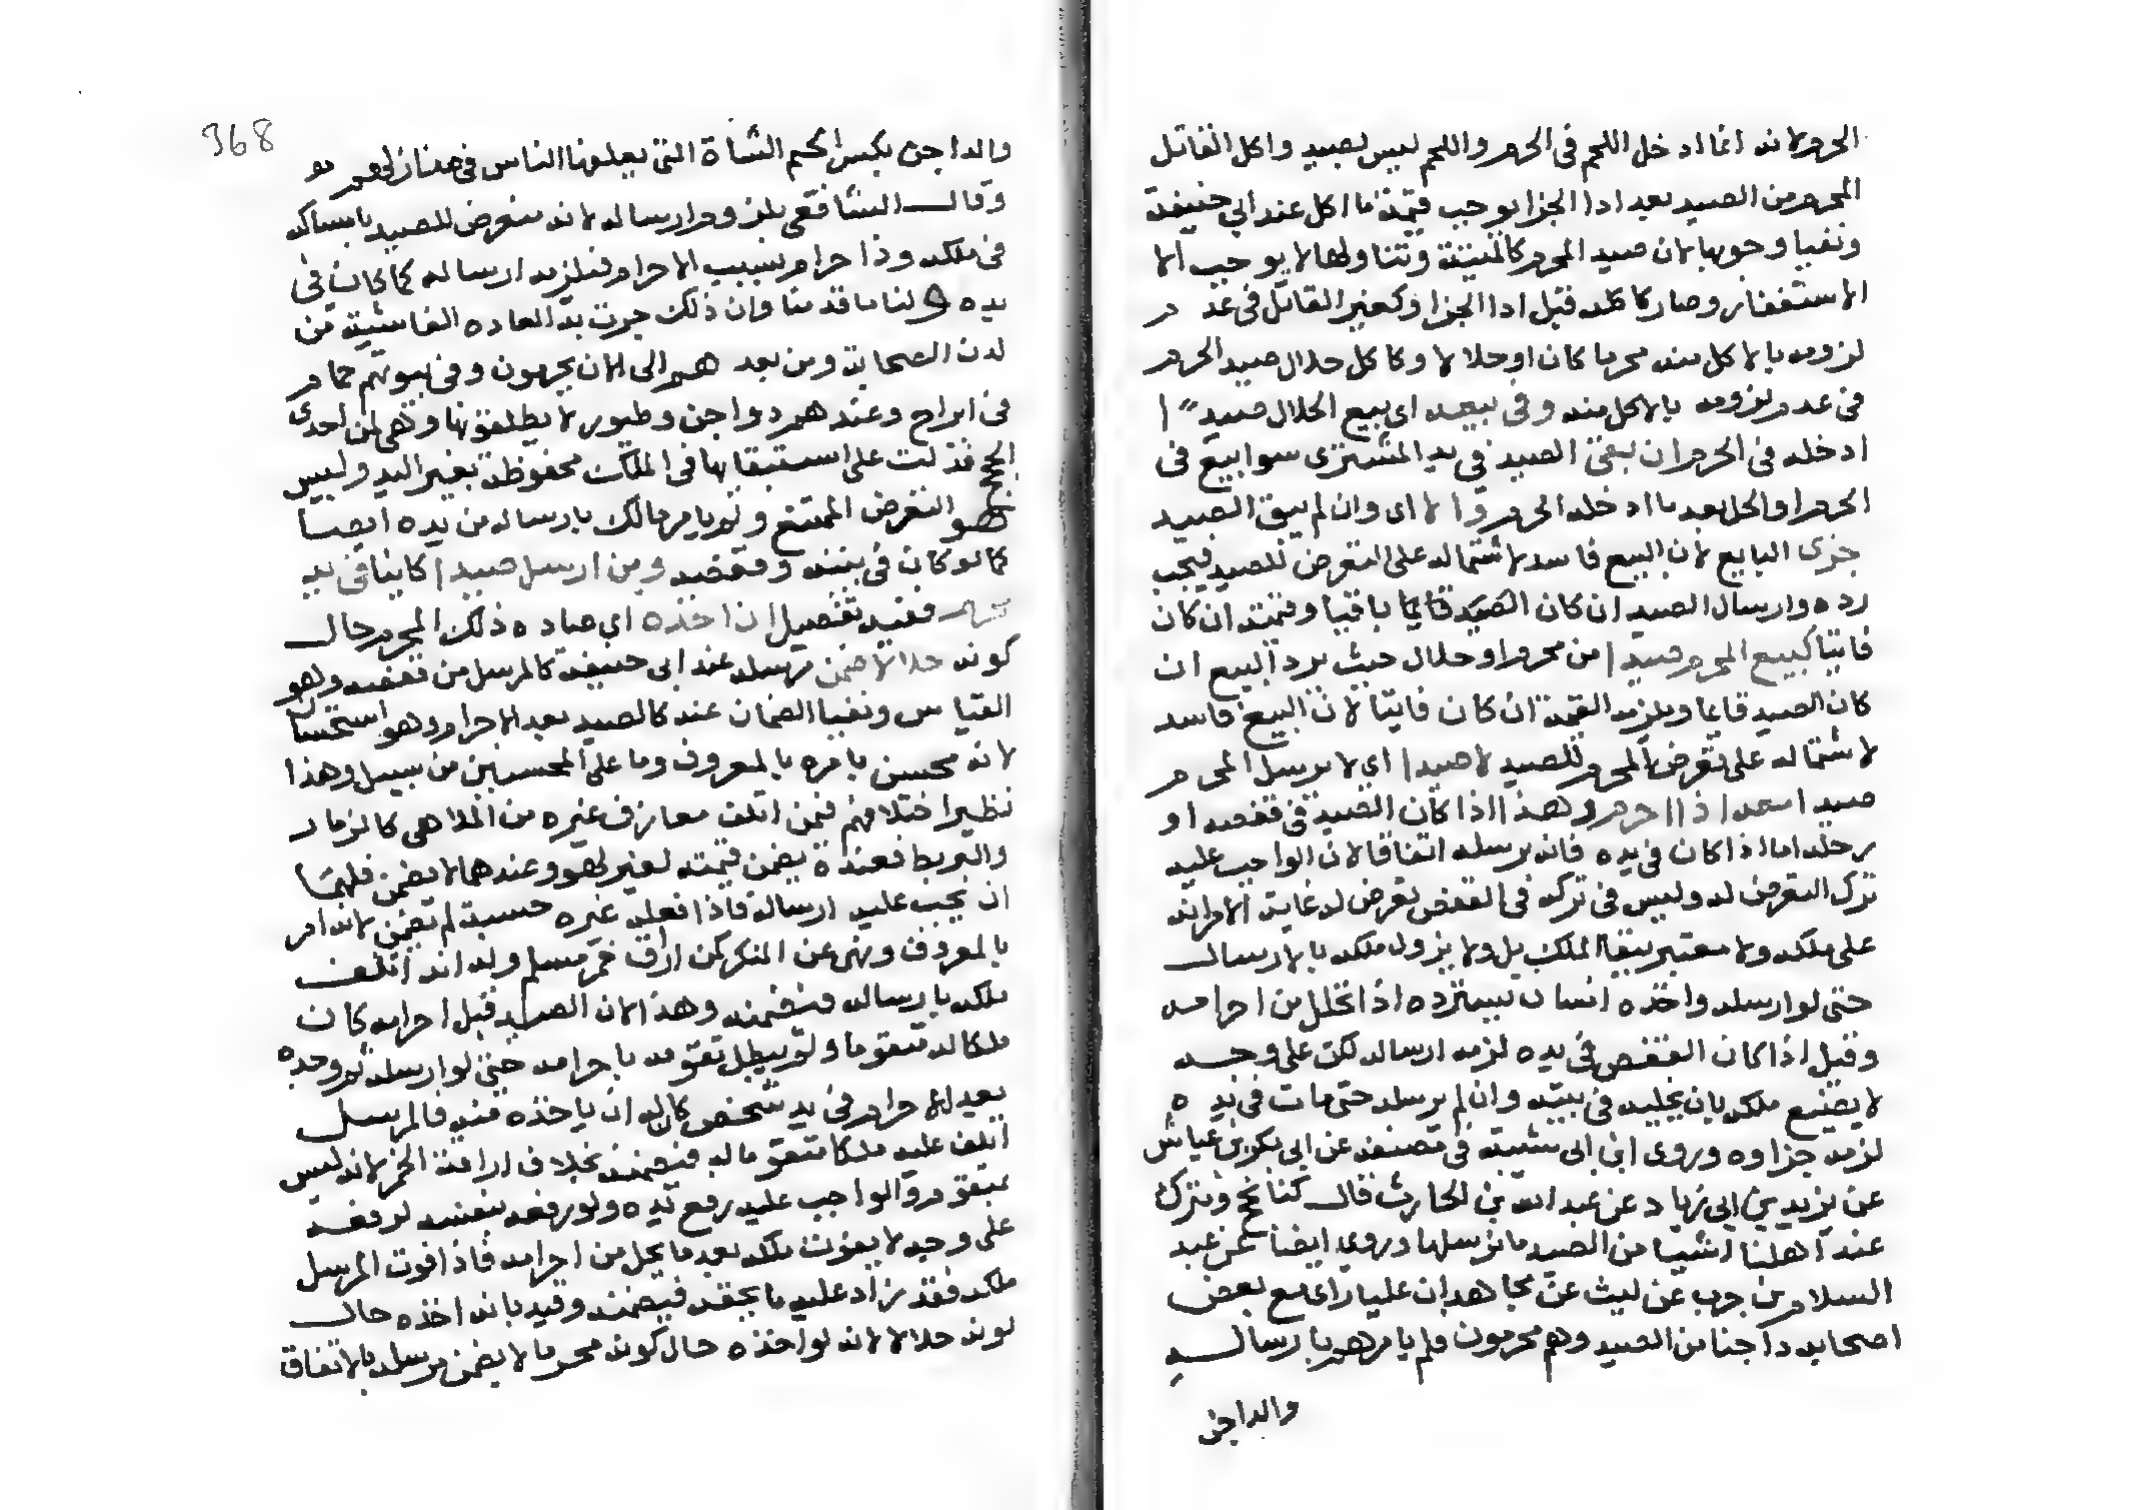 الحرم لانه انما ادخل اللحم فى الحرم واللحم ليس بصيد واكل القاتل
المحرم من الصيد بعد ادا الجزا يوجب قيمة ما اكل عند ابي حنيفة
ونفيا وجوبها لان صيد المحرم كالميتة وتناولها لا يوجب الا
الاستغفار وصار كاكله قبل ادا الجزا وكغير القاتل فى عد م
لزومه بالاكل منه محرما كان او حلالا وكاكل حلال صيد الحرم
فى عدم لزومه بالاكل منه وفى بيعه اى بيع الحلال صيدا
ادخله فى الحرم ان بقى الصيد فى يد المشترى سوا بيع فى
الحرم او الحل بعد ما ادخله الحرم والا اى وان لم يبق الصيد
جزى البايع لان البيع فاسد لاشتماله على التعرض للصيد فيجب
رده وارسال الصيد ان كان الصيد قايما باقيا وقيمته ان كان
فايتا كبيع المحرم صيدا من محرم او حلال حيث يرد البيع ان
كان الصيد قايما ويلزمه القيمة ان كان فايتا لان البيع فاسد
لاشتماله على تعرض المحرم للصيد لا صيدا اي لا يرسل المحر م
صيد امعه اذا احرم وهذا اذا كان الصيد فى قفصه او
رحله اما اذا كان فى يده فانه يرسله اتفاقا لان الواجب عليه
ترك التعرض له وليس فى تركه فى القفص تعرض له غاية الامر انه
على ملكه ولا معتبر ببقا الملك بل ولا يزول ملكه بالارسال
حتى لو ارسله واخذه انسان يسترده اذا تحلل من احرامه
وقيل اذا كان القفص فى يده لزمه ارساله لكن على وجه
لا يضيع ملكه بان يخليه فى بيته وان لم يرسله حتى مات فى يد ه
لزمه جزاوه وروى ابن ابى شيبة فى مصنفه عن ابى بكر بن عياش
عن يزيد بن ابى زياد عن عبد الله بن الحارث قال كنا نحج ونترك
عند اهلنا اشيا من الصيد ما نرسلها وروى ايضا عن عبد
السلام بن حرب عن ليث عن مجاهد ان عليا راى مع بعض
اصحابه داجنا من الصيد وهم محرمون فلم يامرهم بارساله
والداجن
368
والداجن بكسر الجيم الشاة التى يعلفها الناس فى منازلهم
وقال الشافعى يلزوم ارساله لانه متعرض للصيد بامساكه
فى ملكه وذا حرام بسبب الاحرام فيلزمه ارساله كما كان فى
يده ولنا ما قدمنا وان ذلك جرت به العاده الفاشية من
لدن الصحابة ومن بعد هم الى الان يحرمون وفى بيوتهم حمام
فى ابراج وعندهم دواجن وطيور لا يطلقونها وهى من احدى
الحجج فدلت على استبقايها فى الملك محفوظة بغير اليد وليس
هو التعرض الممتنع ولم يامر مالك بارساله من يده ايضا
كما لو كان فى بيته وقفصه ومن ارسل صيدا كاينا فى يد
محرم ففيه تفصيل ان اخذه اي صاده ذلك المحرم حال
كونه حلالا ضمن مرسله عند ابى حنيفة كالمرسل من قفصه وهو
القياس ونفيا الضمان عنه كالصيد بعد الاحرام وهو استحسان
لانه محسن بامره بالمعروف وما على المحسنين من سبيل وهذا
نظير اختلافهم فيمن اتلف معازف غيره من الملاهى كالزمار
والبربط فعنده يضمن قيمته لغير لهو وعندهما لا يضمن فلهما
ان يجب عليه ارساله فاذا فعله غيره حسبة لم يضمن لانه امر
بالمعروف ونهى عن المنكر كمن اراق خمر مسلم وله انه اتلف
ملكه بارساله فيضمنه وهذا لان الصيد قبل احرامه كان
ملكا له متقوما ولم يبطل تقومه باحرامه حتى لو ارسله ثم وجده
بعد الاحرام فى يد شخص كان له ان ياخذه منه فالمرسل
اتلف عليه ملكا متقوما له فيضمنه بخلاف اراقة الخمر لانه ليس
بمتقوم والواجب عليه رفع يده ولو رفعه بنفسه لرفعه
على وجه لا يفوت ملكه بعد ما يحل من احرامه فاذا فوت المرسل
ملكه فقد زاد عليه ما يحقه فيضمنه وقيد بانه اخذه حال
لونه حلالا لانه لو اخذه حال كونه محرما لا يضمن مرسله بالاتفاق